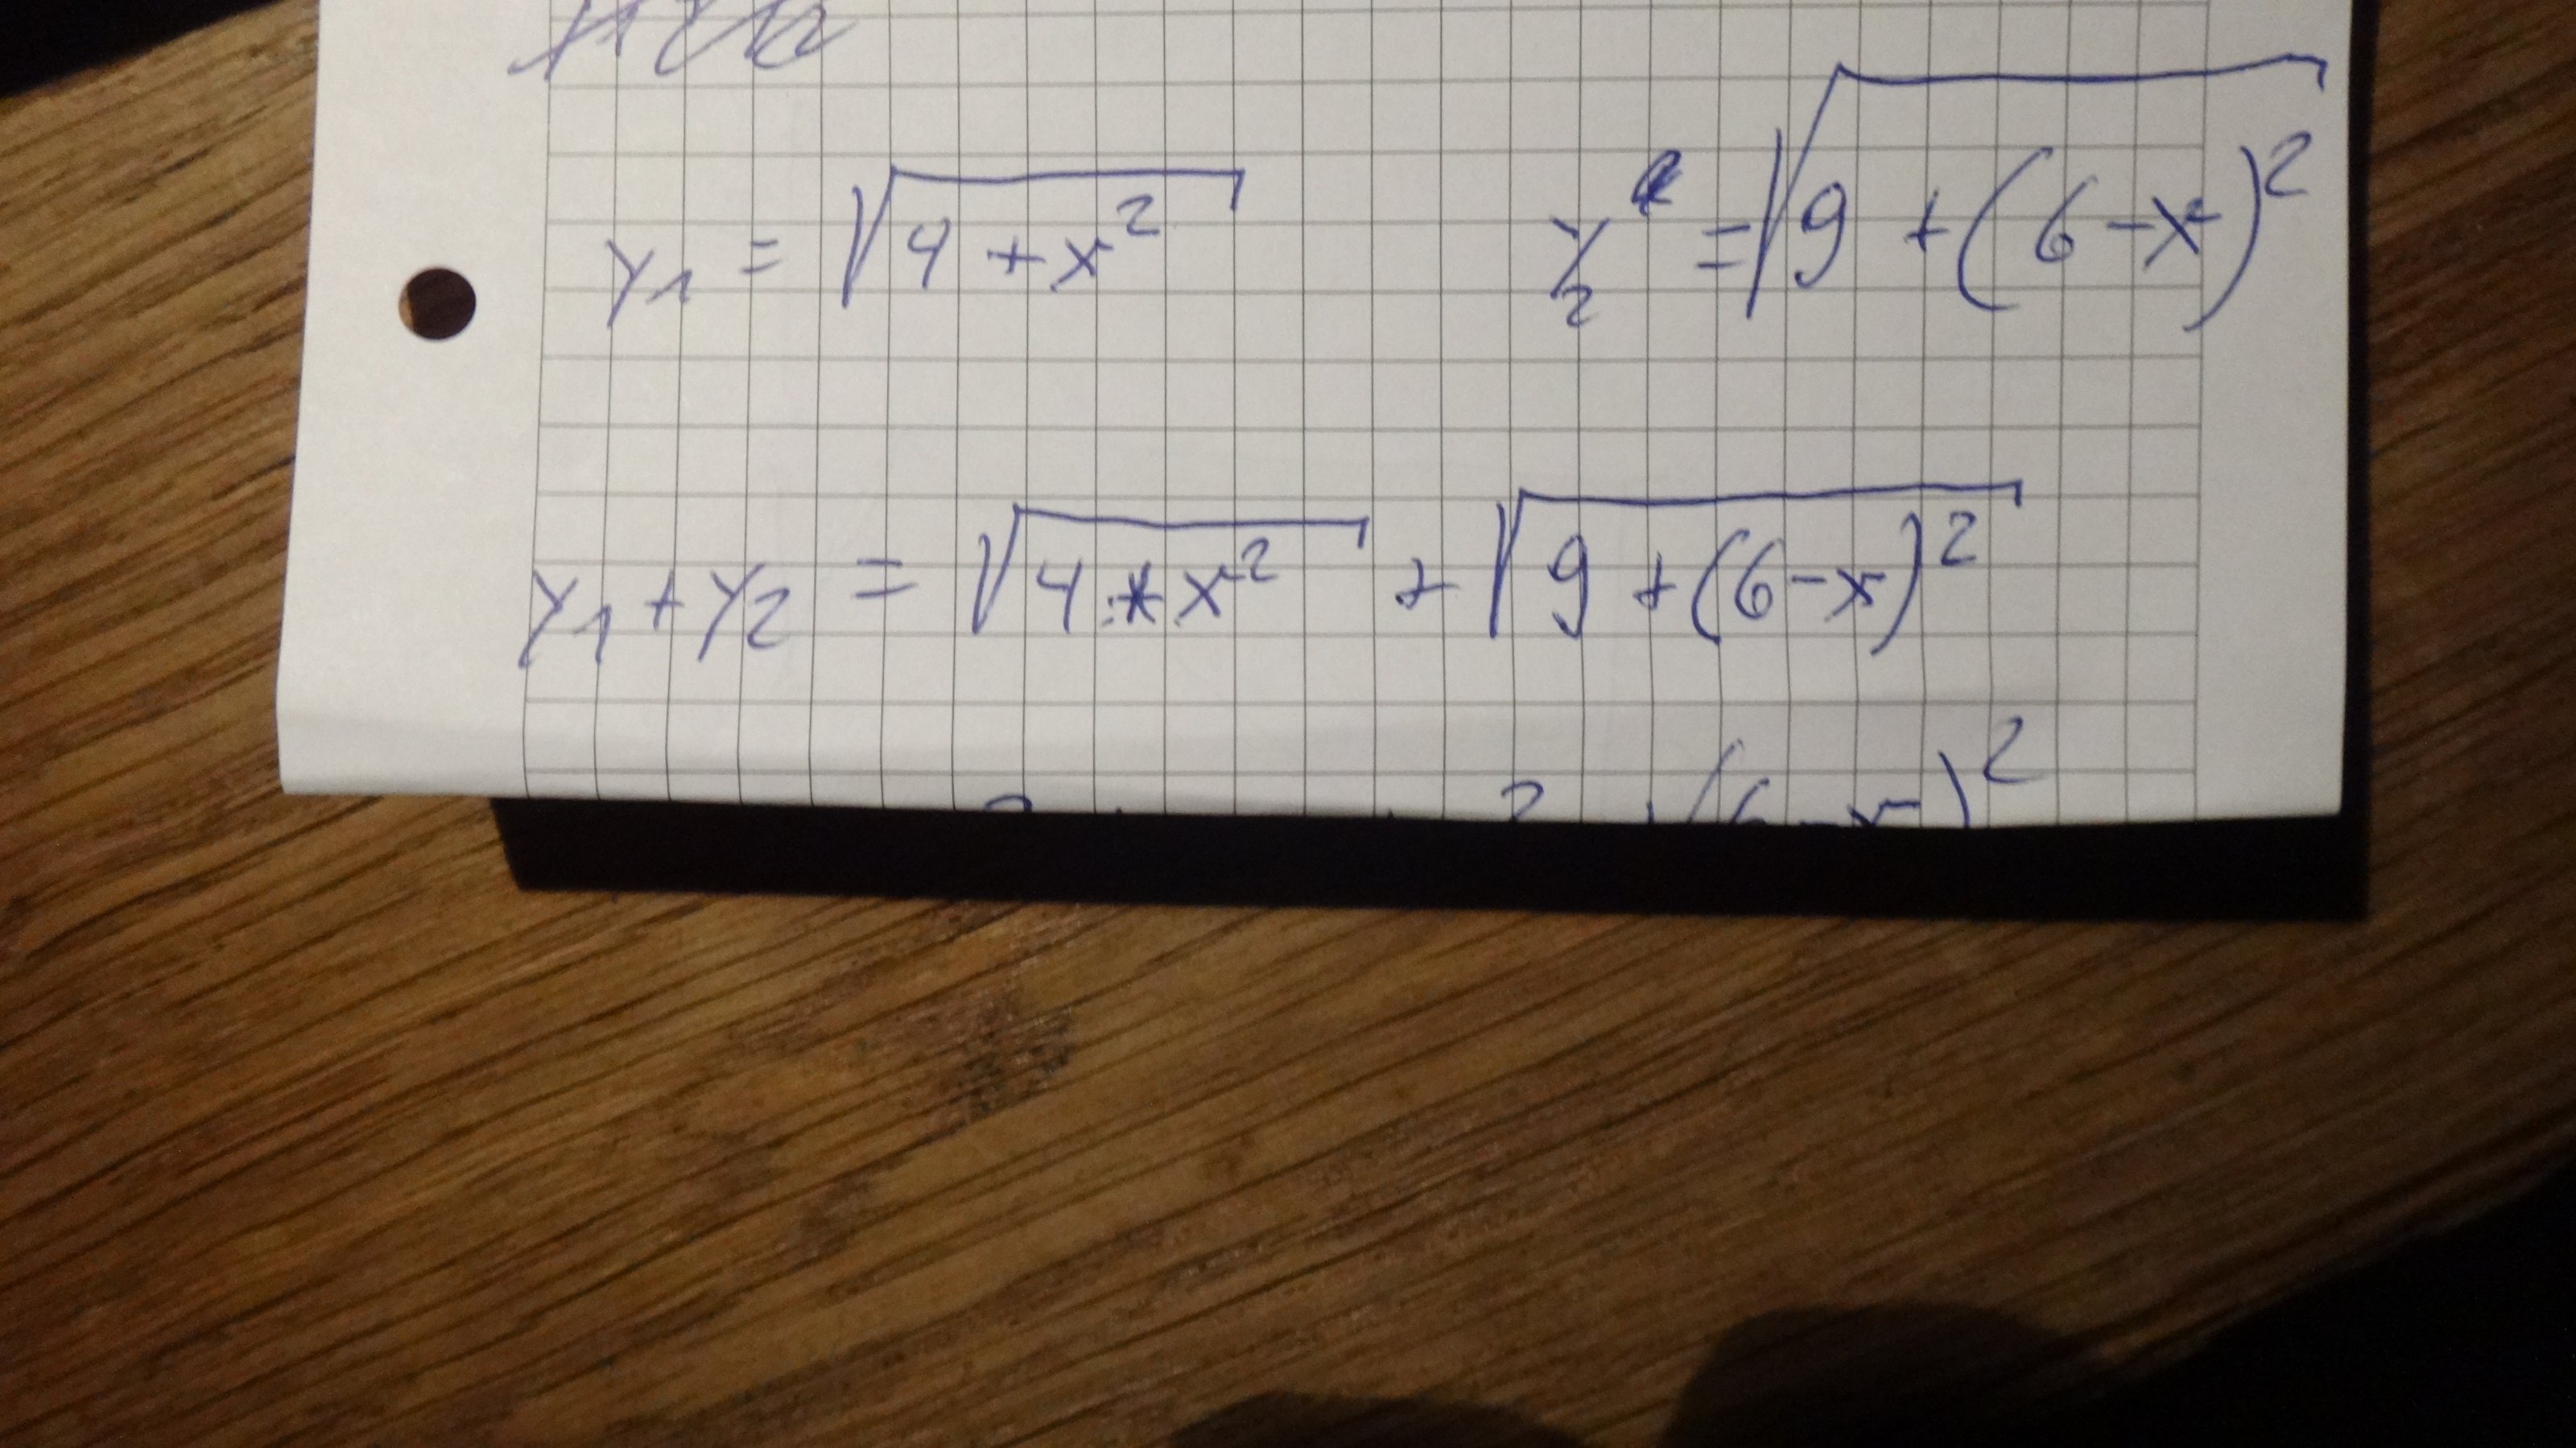 y₁ = √(4 + x²)    y₂ = √(9 + (6 - x)²)
y₁ + y₂ = √(4 + x²) + √(9 + (6 - x)²)